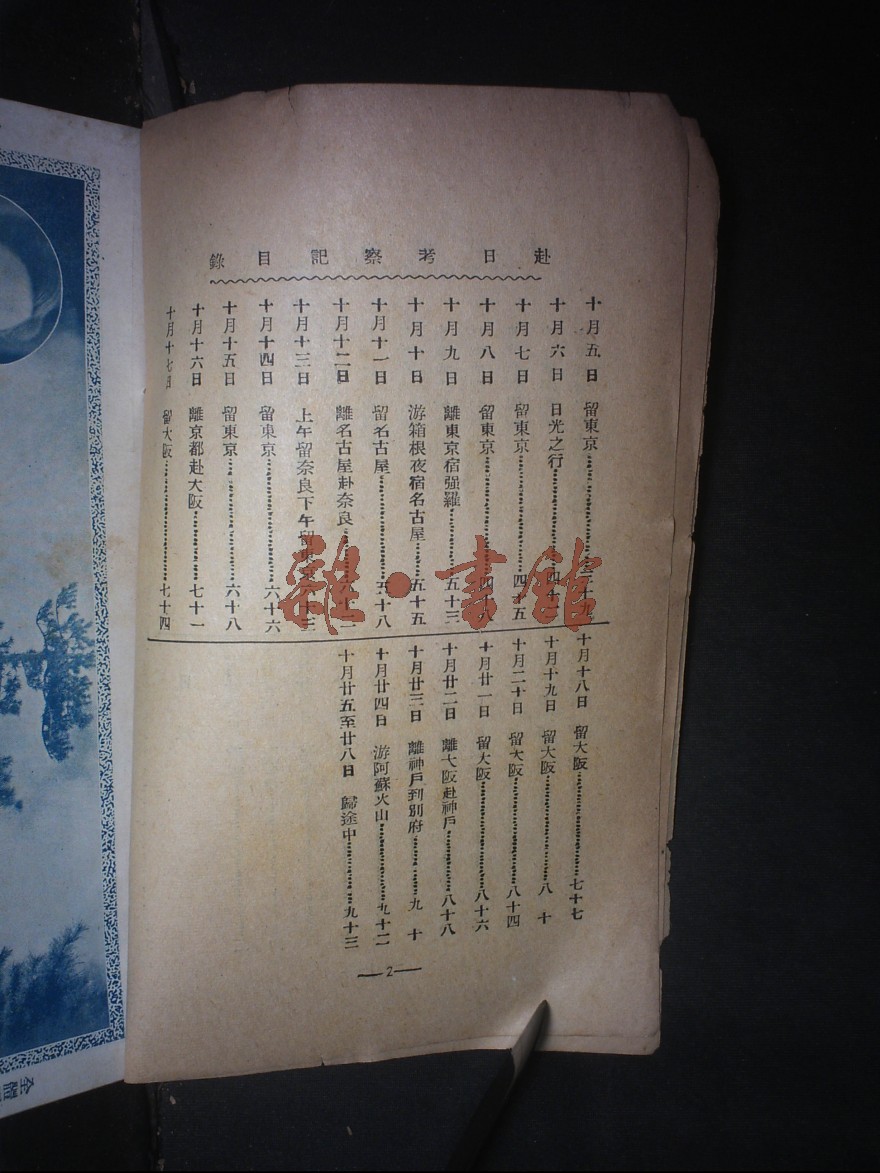 赴日考察記目錄
十月五日 留東京……三十九
十月六日 日光之行……四十
十月七日 留東京……四十五
十月八日 留東京……四十
十月九日 離東京宿强羅……五十三
十月十日 游箱根夜宿名古屋……五十五
十月十一日 留名古屋……五十八
十月十二日 離名古屋赴奈良……六十
十月十三日 上午留奈良下午留東京六十三
十月十四日 留東京……六十六
十月十五日 留東京……六十八
十月十六日 離京都赴大阪……七十一
十月十七日 留大阪……七十四
十月十八日 留大阪……七十七
十月十九日 留大阪……八十
十月二十日 留大阪……八十四
十月廿一日 留大阪……八十六
十月廿二日 離大阪赴神戶……八十八
十月廿三日 離神戶到別府……九十
十月廿四日 游阿蘇火山……九十二
十月廿五至廿八日 歸途中……九十三
—2—
雜·書館
全體